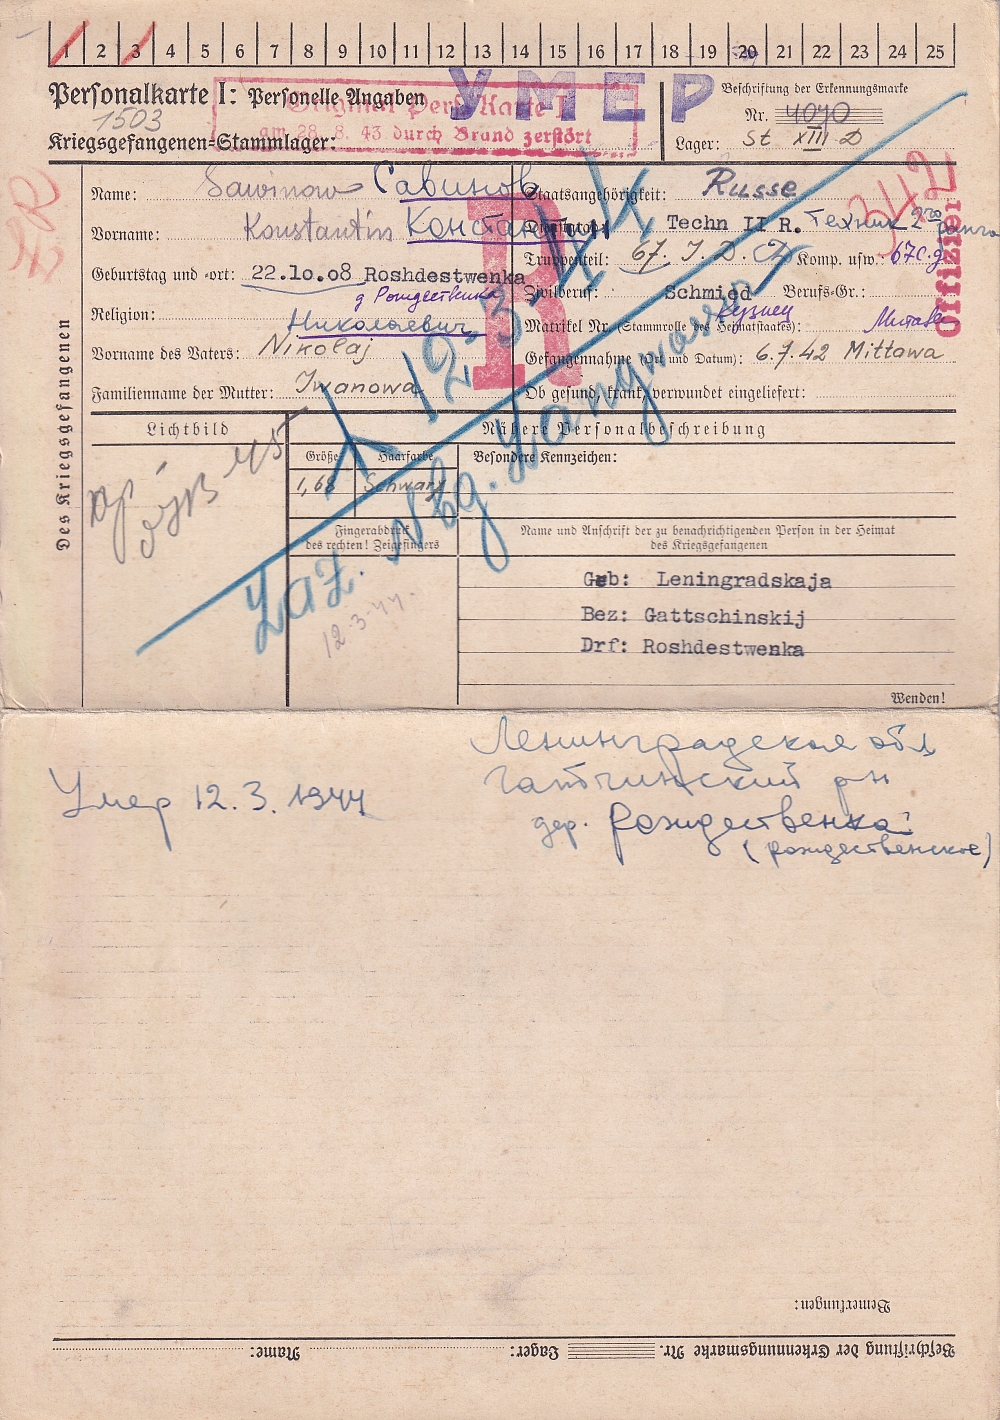 1 2 3 4 5 6 7 8 9 10 11 12 13 14 15 16 17 18 19 20 21 22 23 24 25
УМЕР
Personalkarte I: Personelle Angaben
Beschriftung der Erkennungsmarke
Original Pers. Karte I
am 28. 8. 43 durch Brand zerstört
1503
Nr. 4070
Kriegsgefangenen-Stammlager:
Lager: St XIII D
Des Kriegsgefangenen
Name: Sawinow Савинов
Vorname: Konstantin Константин
Geburtstag und -ort: 22.10.08 Roshdestwenka
д Рождественка
Religion:
Николаевич
Vorname des Vaters: Nikolaj
Familienname der Mutter: Iwanowa
R
Staatsangehörigkeit: Russe
Techn II R. Техник 2го ранга
Truppenteil: 67. I. D. Komp. usw.: 67 с.д
Zivilberuf: Schmied Berufs-Gr.:
кузнец
Matrikel Nr. (Stammrolle des Heimatstaates):
Gefangennahme (Ort und Datum): 6.7.42 Mittawa
Ob gesund, krank, verwundet eingeliefert:
Offizier
12.3.44
Laz. Nbg. Langwasser
Lichtbild
Nähere Personalbeschreibung
Größe Haarfarbe Besondere Kennzeichen:
1,68 Schwarz
Fingerabdruck
des rechten! Zeigefingers
Name und Anschrift der zu benachrichtigenden Person in der Heimat
des Kriegsgefangenen
12.3.44.
Geb: Leningradskaja
Bez: Gattschinskij
Drf: Roshdestwenka
Wenden!
Ленинградская обл
Гатчинский рн
Умер 12.3.1944
дер. Рождественка
(рождественское)
Bemerkungen:
Beschriftung der Erkennungsmarke Nr. Lager: Name: